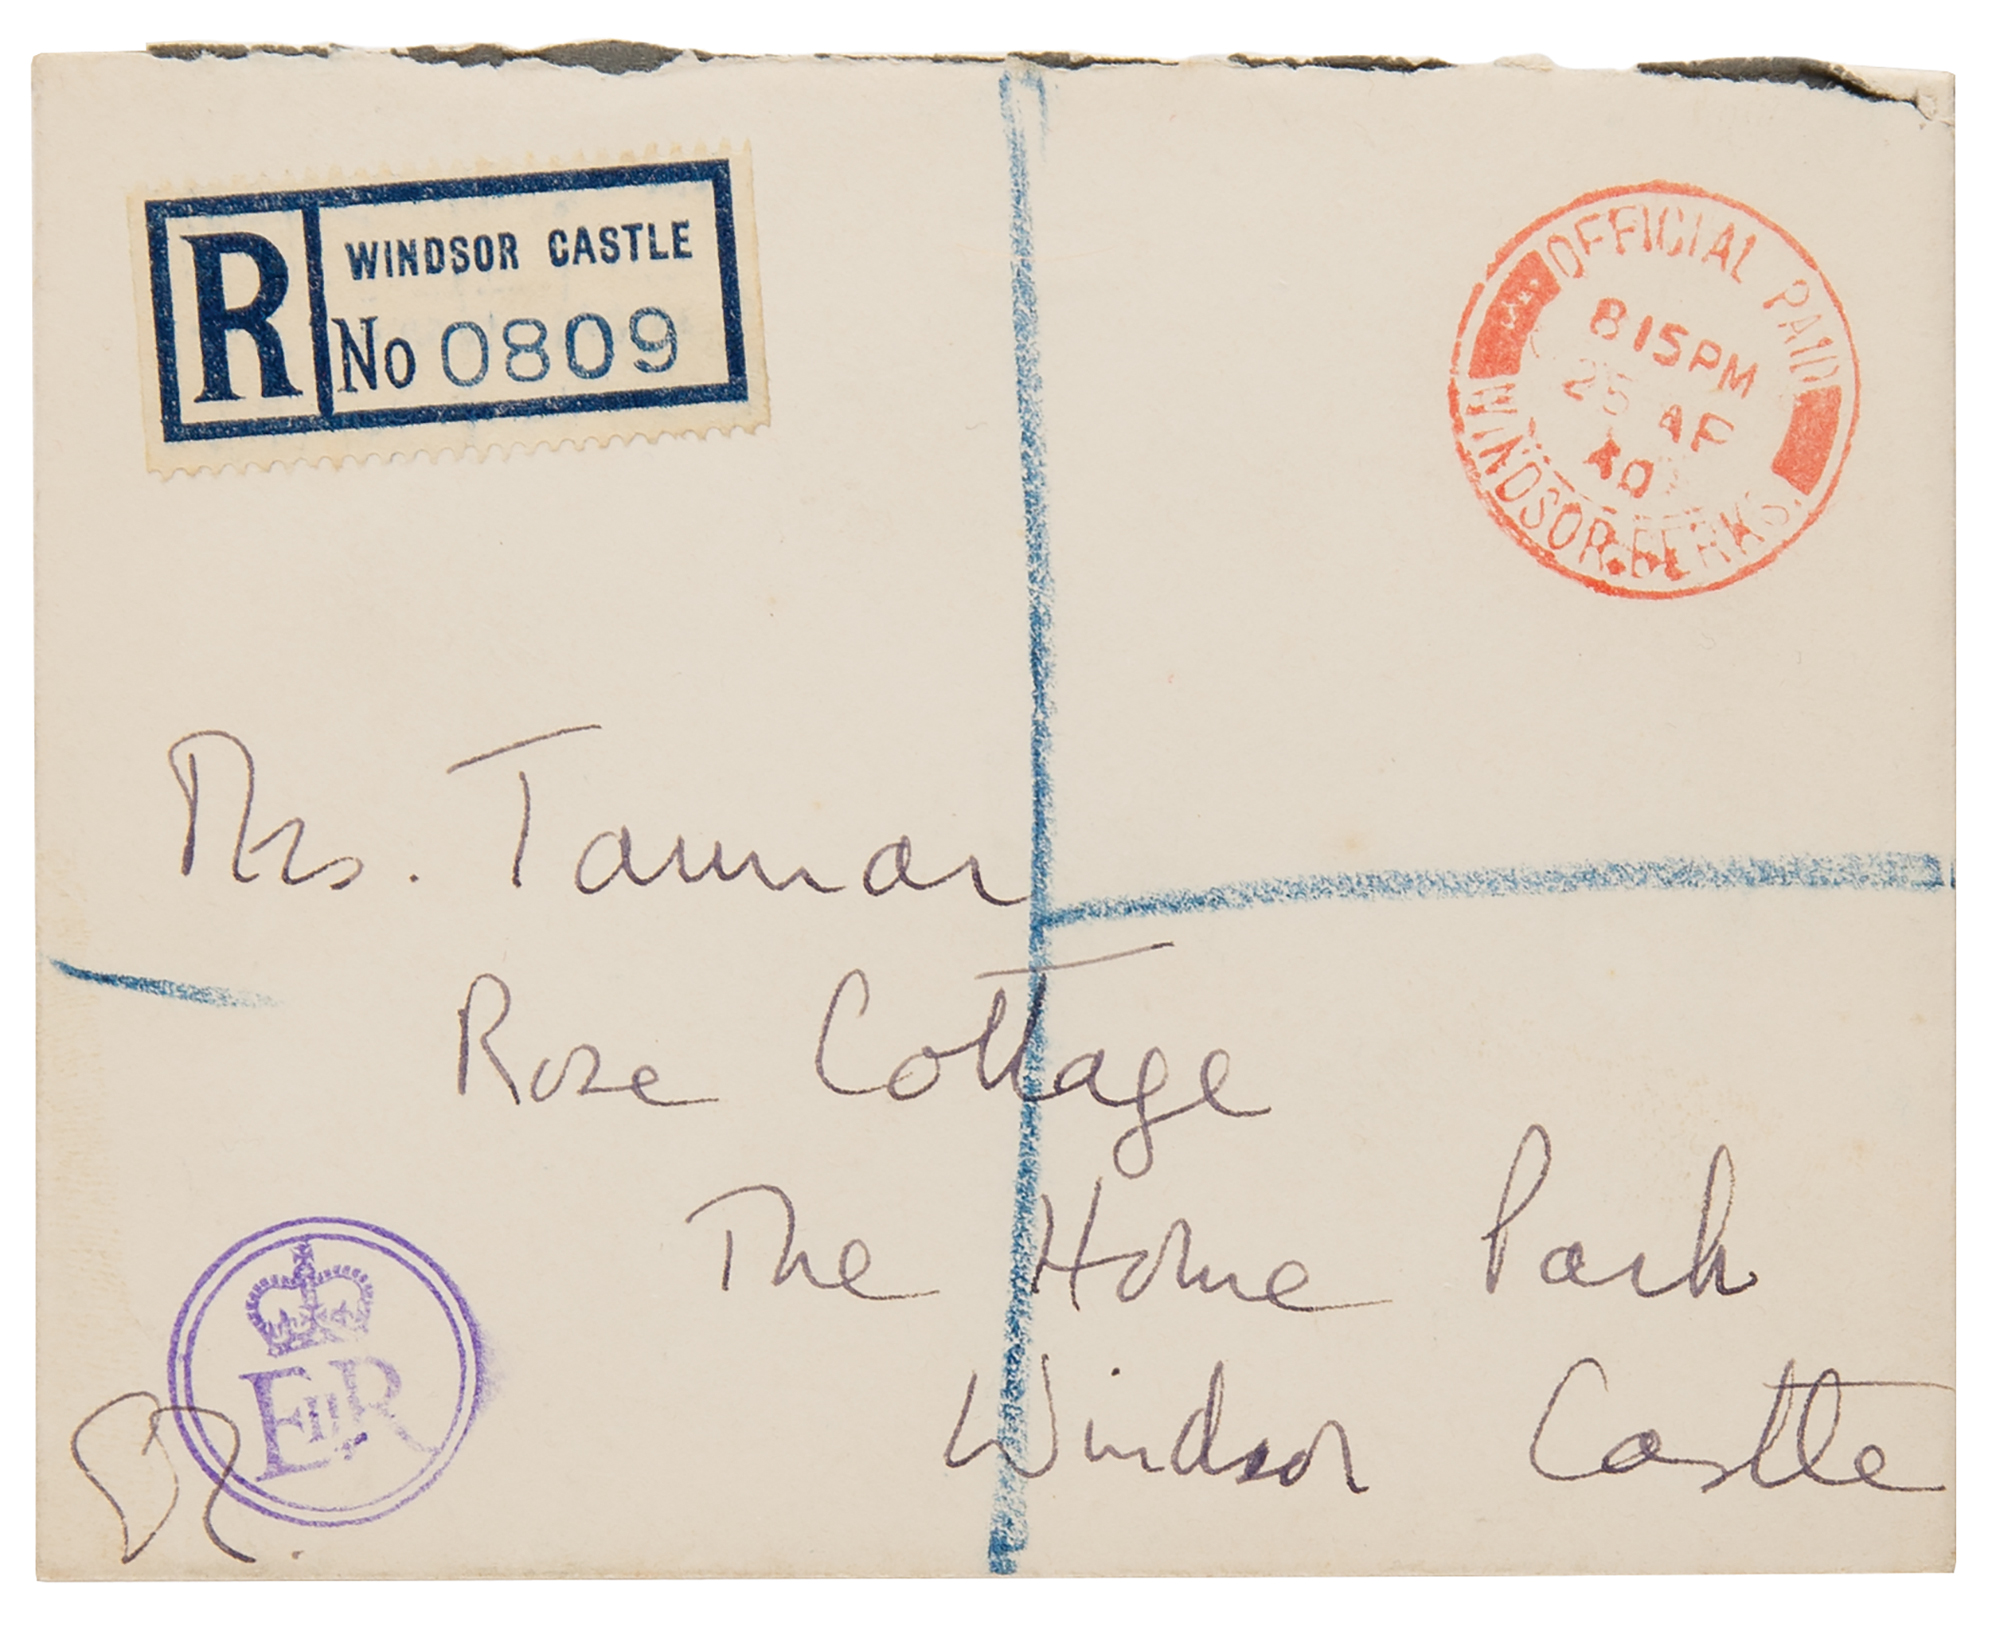 R
WINDSOR CASTLE
No 0809
OFFICIAL PAID
815PM
25 AP
WINDSOR.BERKS.
Mrs. Tannar
Rose Cottage
The Home Park
Windsor Castle
EIIR